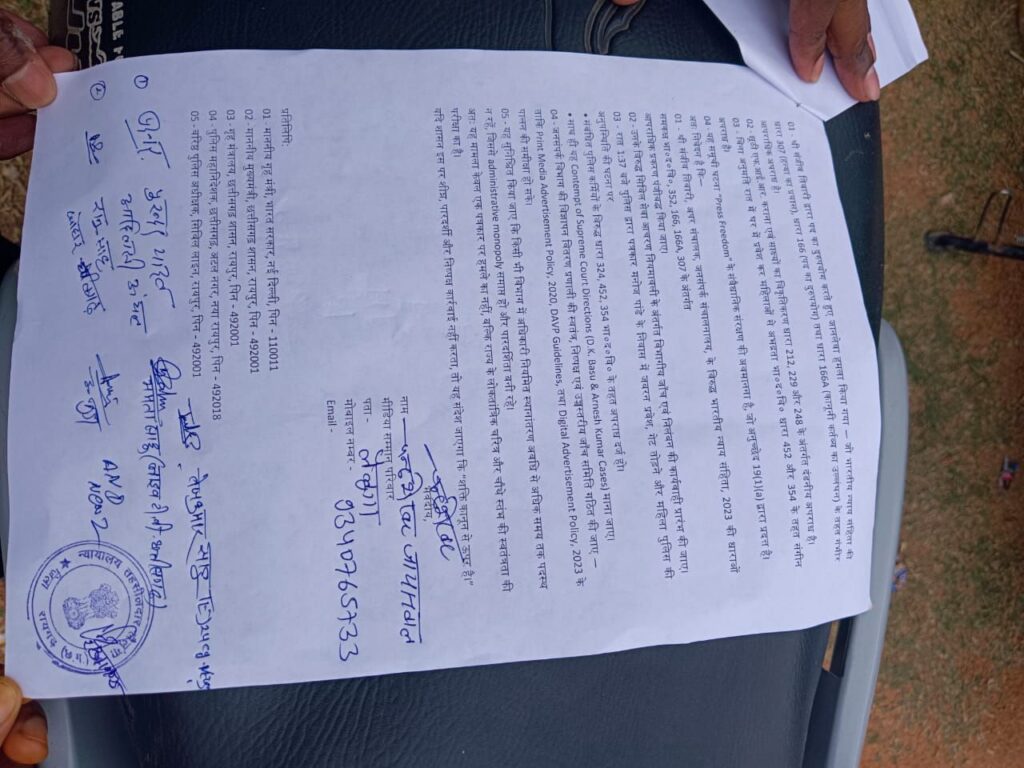 01 - श्री संजीव तिवारी द्वारा पद का दुरुपयोग करते हुए जानलेवा हमला किया गया — जो भारतीय न्याय संहिता की
धारा 307 (हत्या का प्रयास), धारा 166 (पद का दुरुपयोग) तथा धारा 166A (कानूनी कर्तव्य का उल्लंघन) के तहत गंभीर
आपराधिक अपराध है।
02 - झूठी एफ.आई.आर. कराना एवं साक्ष्यों का विकृतिकरण धारा 212, 229 और 248 के अंतर्गत दंडनीय अपराध है।
03 - बिना अनुमति रात में घर में प्रवेश कर महिलाओं से अभद्रता भा०द०वि० धारा 452 और 354 के तहत संगीन
अपराध है।
04 यह समूची घटना "Press Freedom" के संवैधानिक संरक्षण की अवमानना है, जो अनुच्छेद 19(1)(a) द्वारा प्रदत्त है।
अतः निवेदन है कि—
01 - श्री संजीव तिवारी, अपर संचालक, जनसंपर्क संचालनालय, के विरुद्ध भारतीय न्याय संहिता, 2023 की धाराओं
समकक्ष भा०द०वि०, 352, 166, 166A, 307 के अंतर्गत
आपराधिक प्रकरण पंजीबद्ध किया जाए।
02 - उनके विरुद्ध सिविल सेवा आचरण नियमावली के अंतर्गत विभागीय जाँच एवं निलंबन की कार्यवाही प्रारंभ की जाए।
03 - रात 1:37 बजे पुलिस द्वारा पत्रकार मनोज पांडे के निवास में जबरन प्रवेश, गेट तोड़ने और महिला पुलिस की
अनुपस्थिति की घटना पर
• संबंधित पुलिस कर्मियों के विरुद्ध धारा 324, 452, 354 भा०द०वि० के तहत अपराध दर्ज हो।
• साथ ही यह Contempt of Supreme Court Directions (D.K. Basu & Arnesh Kumar Cases) माना जाए।
04 - जनसंपर्क विभाग की विज्ञापन वितरण प्रणाली की स्वतंत्र, निष्पक्ष एवं उच्चस्तरीय जाँच समिति गठित की जाए —
ताकि Print Media Advertisement Policy, 2020, DAVP Guidelines, तथा Digital Advertisement Policy, 2023 के
पालन की समीक्षा हो सके।
05 - यह सुनिश्चित किया जाए कि किसी भी विभाग में अधिकारी नियमित स्थानांतरण अवधि से अधिक समय तक पदस्थ
न रहें, जिससे administrative monopoly समाप्त हो और पारदर्शिता बनी रहे।
अतः यह मामला केवल एक पत्रकार पर हमले का नहीं, बल्कि राज्य के लोकतांत्रिक चरित्र और चौथे स्तंभ की स्वतंत्रता की
परीक्षा का है।
यदि शासन इस पर शीघ्र, पारदर्शी और निष्पक्ष कार्रवाई नहीं करता, तो यह संदेश जाएगा कि "शक्ति कानून से ऊपर है।"
भवदीय,
नाम —
मीडिया सम्मान परिवार
पता -
मोबाइल नम्बर:- 9340765733
Email -
प्रतिलिपि:
01 - माननीय गृह मंत्री, भारत सरकार, नई दिल्ली, पिन - 110011
02 - माननीय मुख्यमंत्री, छत्तीसगढ़ शासन, रायपुर, पिन - 492001
03 - गृह मंत्रालय, छत्तीसगढ़ शासन, रायपुर, पिन - 492001
04 - पुलिस महानिदेशक, छत्तीसगढ़, अटल नगर, नया रायपुर, पिन - 492018
05 - वरिष्ठ पुलिस अधीक्षक, सिविल लाइन, रायपुर, पिन - 492001
न्यायालय तहसीलदार